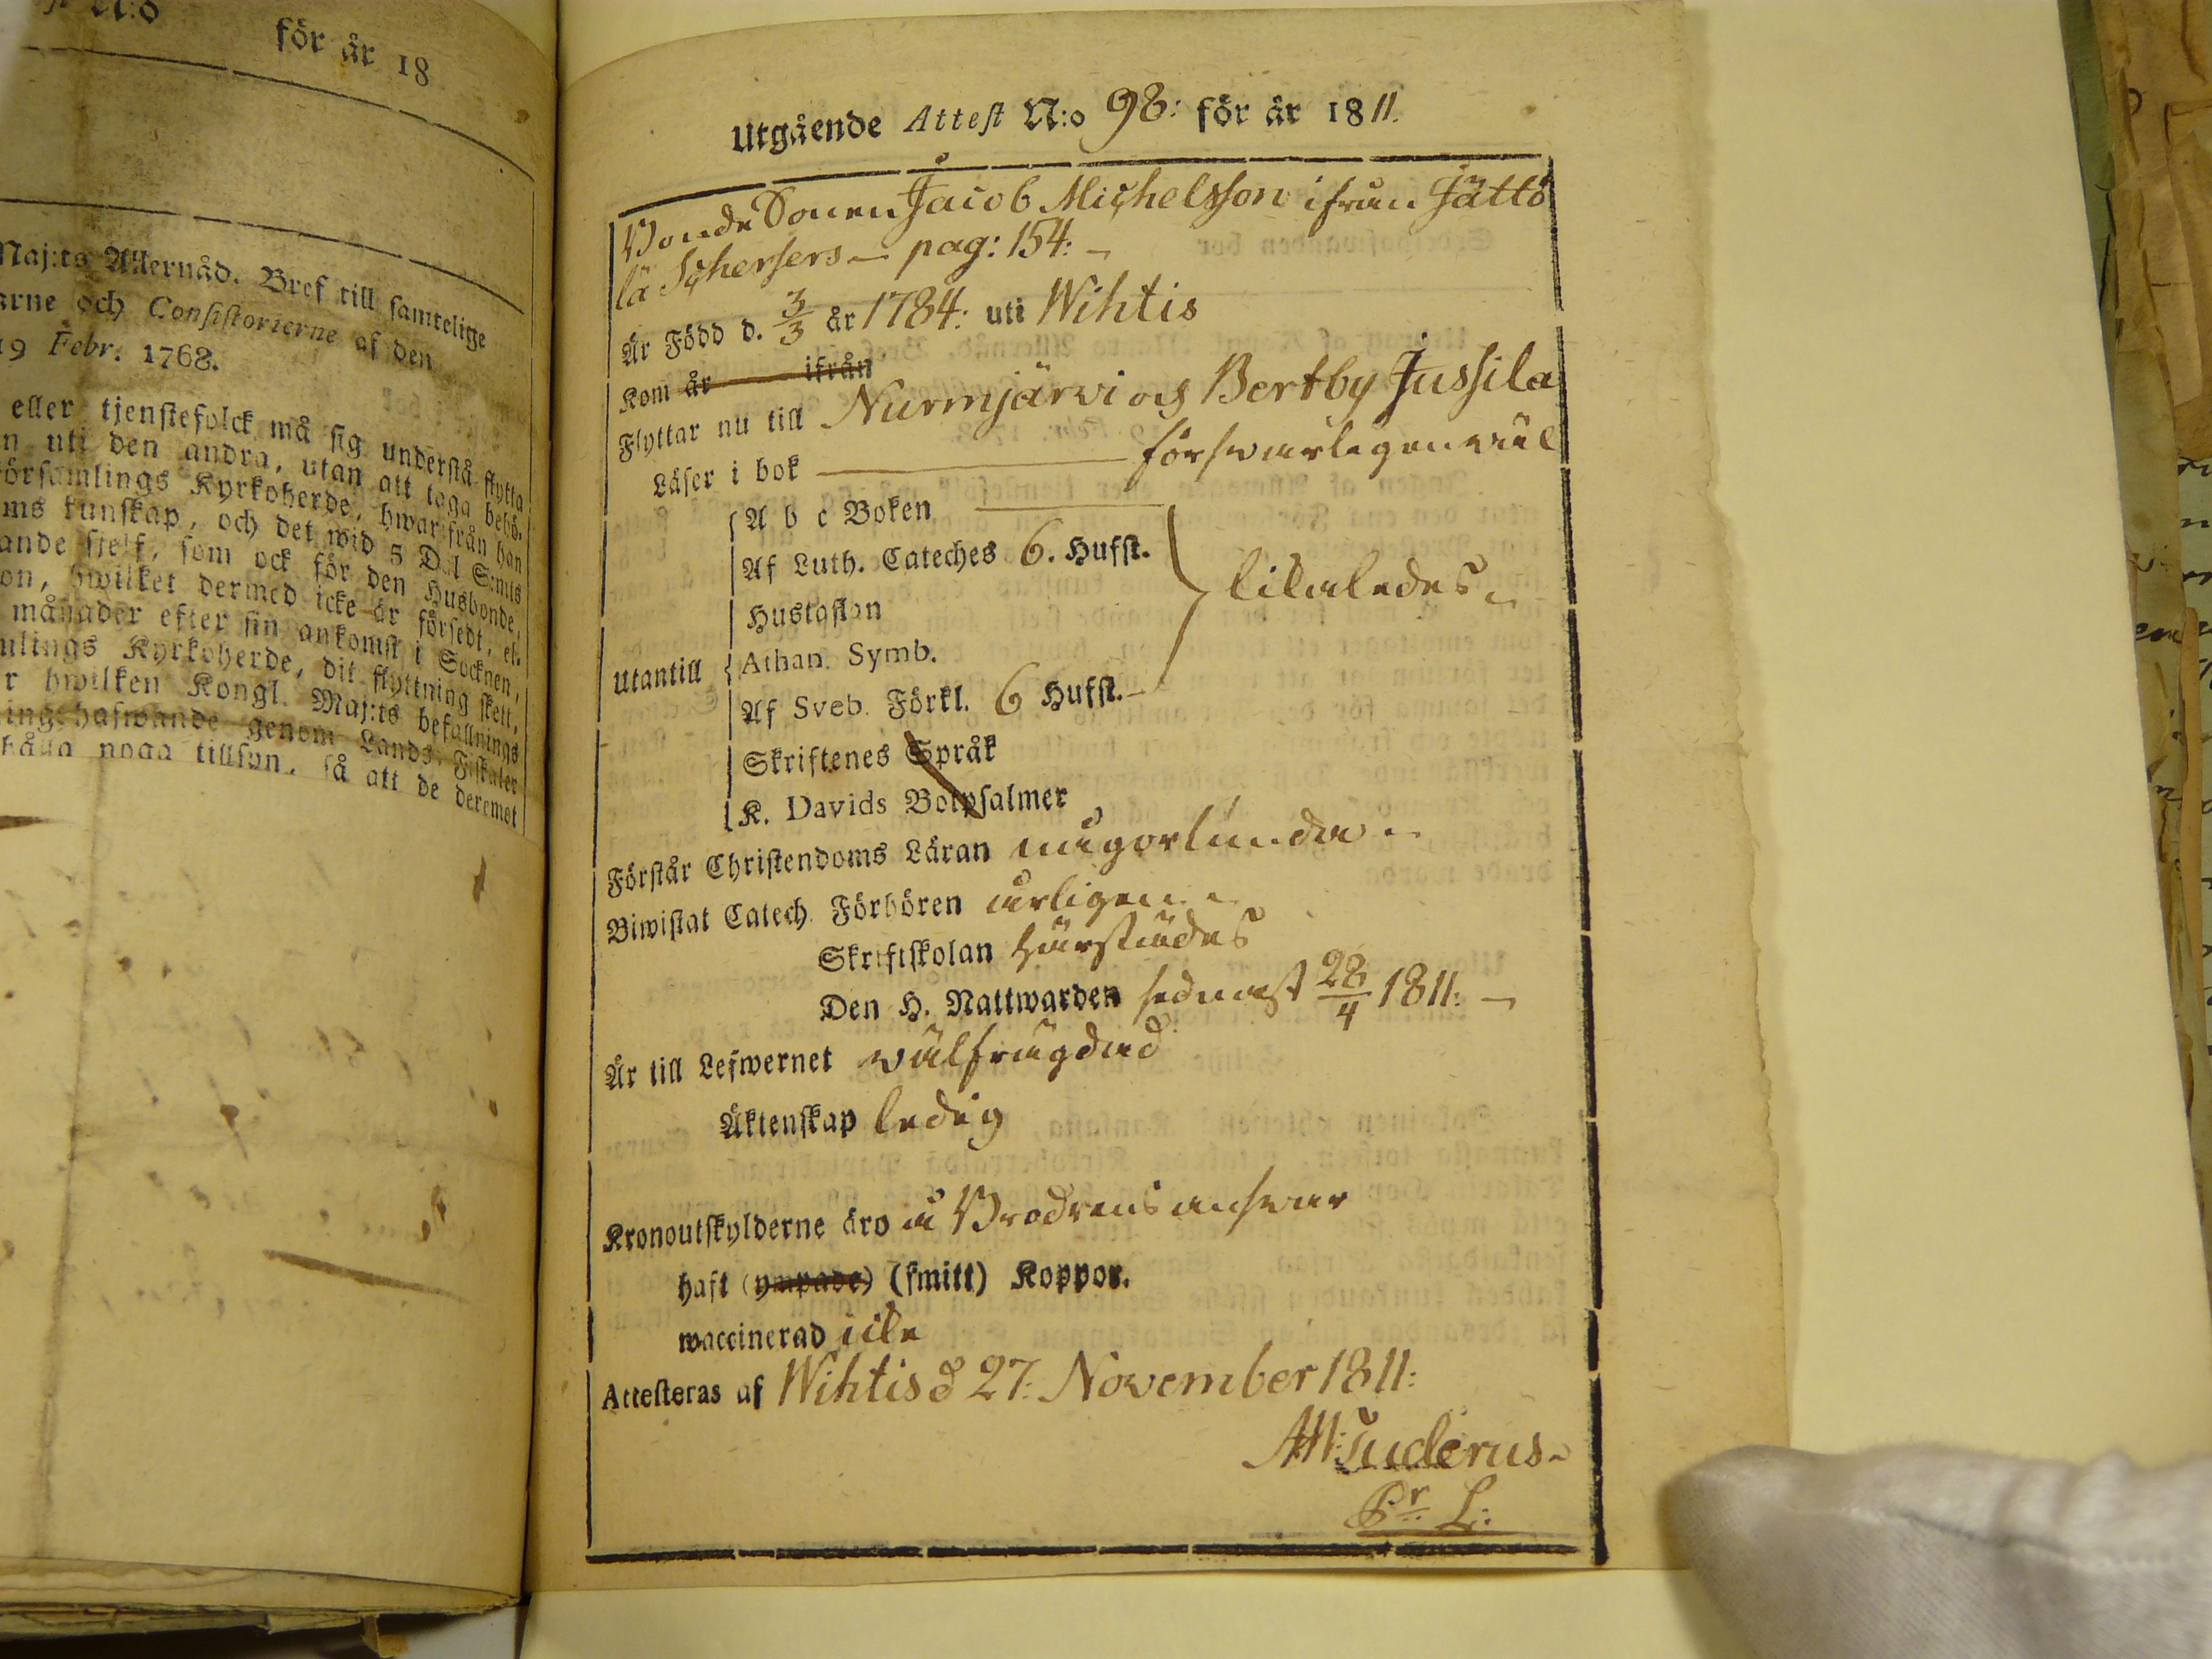 N:o för år 18
Maj:ts Allernåd. Bref till samtelige
arne och Consistorierne af den
19 Febr. 1768.
eller tjenstefolck må sig understå flytta
n uti den andra, utan att taga behö-
örsamlings Kyrkoherde, hwarifrån han
ms kunskap, och det wid 5 Dal S:mts
ande sjelf, som ock för den Husbonde,
on, hwilket dermed icke är försedt, el-
månader efter sin ankomst i Socknen,
mlings Kyrkoherde, dit flyttning skett,
r hwilken Kongl. Maj:ts befallnings
ingshafwande genom Lands-Fiskaler
hålla noga tillsyn, så att de deremot
Utgående Attest N:o 98: för år 1811.
Bonde Sonen Jacob Michelsson ifrån Jätto
lä Schersers — pag: 154: —
Är Född d. 3/3 år 1784: uti Wihtis
Kom år ifrån
Flyttar nu till Nurmjärvi och Bertby Jussila
Läser i bok — försvarligen väl
Utantill
A b c Boken —
Af Luth. Cateches 6. Hufst.
Hustaflan
Athan. Symb.
Af Sveb. Förkl. 6 Hufst.
likaledes
Skriftenes Språk
K. Davids Botpsalmer
Förstår Christendoms Läran någorlunda
Biwistat Catech. Förhören årligen
Skriftskolan härstädes
Den H. Nattwarden sednast 28/4 1811: —
Är till Lefwernet välfrägdad
Äktenskap ledig
Kronoutskylderne äro å Brodrens answar
haft (ympade) (smitt) Koppor.
waccinerad icke
Attesteras af Wihtis d 27: November 1811:
Tuderus
Pr. L: